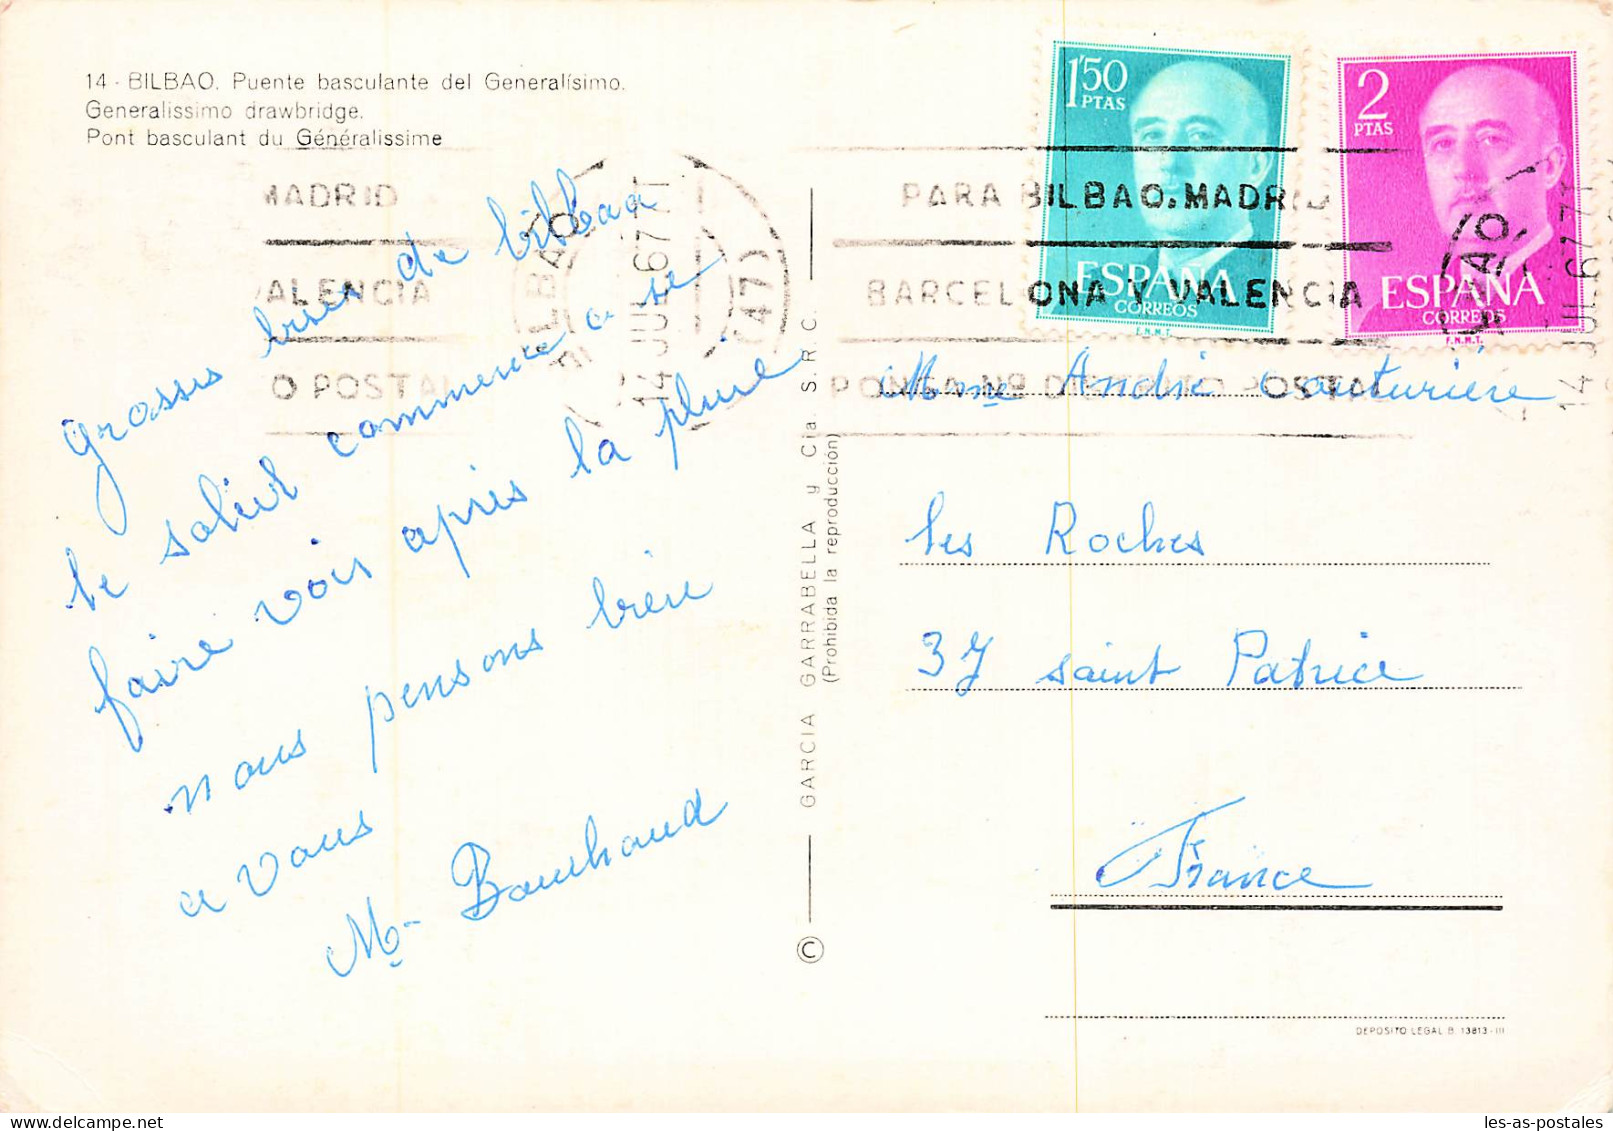 14 - BILBAO. Puente basculante del Generalísimo.
Generalissimo drawbridge.
Pont basculant du Généralissime
grosses bises de bilbao
le soleil commence a se
faire voir après la pluie
nous pensons bien
a vous
Mme Bouchaud
MADRID
VALENCIA
O POSTAL
BILBAO
14 JUL 67
(47)
GARCIA GARRABELLA y Cía. S.R.C.
(Prohibida la reproducción)
©
1'50
PTAS
ESPAÑA
CORREOS
F.N.M.T.
2
PTAS
ESPAÑA
CORREOS
F.N.M.T.
PARA BILBAO, MADRID
BARCELONA Y VALENCIA
PONGA Nº DISTRITO POSTAL
BILBAO
14 JUL 67
Mme André Couturière
les Roches
37 saint Patrice
France
DEPOSITO LEGAL B. 13813-III
les-as-postales